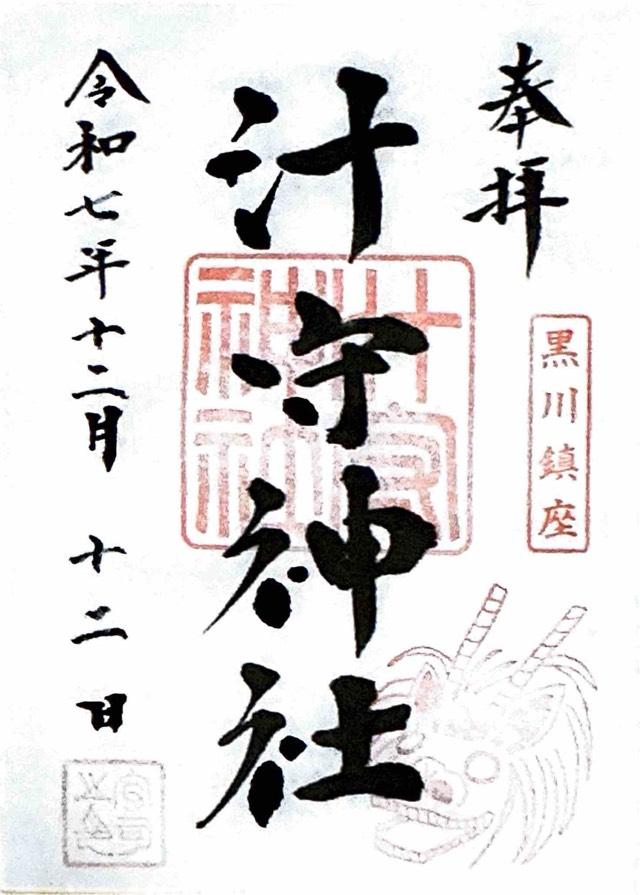 奉拝
黒川鎮座
汁守神社
汁守神社
令和七年十二月十二日